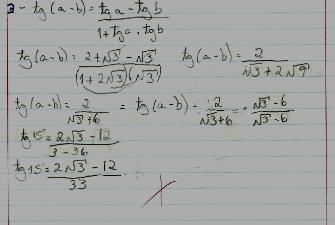 2- tg(a-b) = tga - tgb / 1 + tga . tgb
tg(a-b) = 2+√3 - √3 / (1+2√3)(√3)    tg(a-b) = 2 / √3 + 2√9
tg(a-b) = 2 / √3+6 = tg(a-b) = 2 / √3+6 . √3-6 / √3-6
tg15 = 2√3 - 12 / 3 - 36
tg15 = 2√3 - 12 / 33